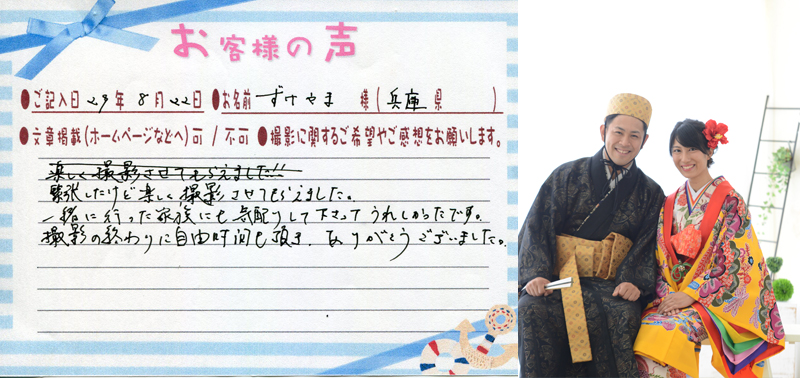 お客様の声
●ご記入日 29年 8月 22日 ●お名前 ずけやま 様(兵庫県 )
●文章掲載(ホームページなどへ)可 / 不可 ●撮影に関するご希望やご感想をお願いします。
楽しく撮影させてもらえました!!
緊張したけど楽しく撮影させてもらえました。
一緒に行った家族にも気配りして下さってうれしかったです。
撮影の終わりに自由時間も頂き、ありがとうございました。